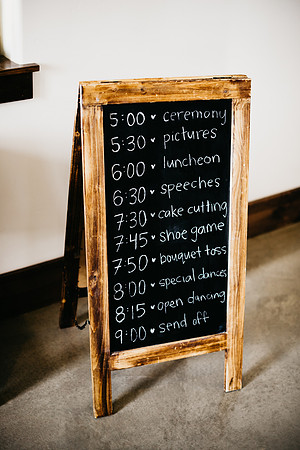 5:00 ♥ ceremony
5:30 ♥ pictures
6:00 ♥ luncheon
6:30 ♥ speeches
7:30 ♥ cake cutting
7:45 ♥ shoe game
7:50 ♥ bouquet toss
8:00 ♥ special dances
8:15 ♥ open dancing
9:00 ♥ send off